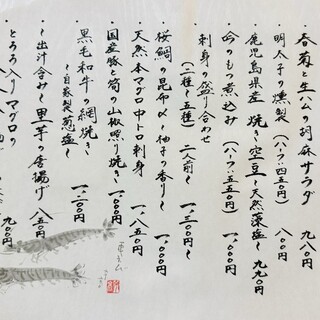 ・春菊と生ハムの胡麻サラダ 九八〇円
・明太子の燻製(ハーフ:四五〇円) 九〇〇円
・鹿児島県産 焼き空豆〜天然藻塩〜 九九〇円
・吟のもつ煮込み(ハーフ:五五〇円) 一、〇〇〇円
・刺身の盛り合わせ
(二種〜五種) 二人前〜 一、三〇〇円〜
・桜鯛の昆布〆〜柚子の香り〜 一、〇〇〇円
・天然本マグロ中トロ刺身 一、八五〇円
・国産豚と筍の山椒照り焼き 一、〇〇〇円
・黒毛和牛の網焼き
〜自家製葱塩〜 一、二〇〇円
・〜出汁含み〜里芋の唐揚げ 八五〇円
・とろろ入りマグロの
九〇〇円